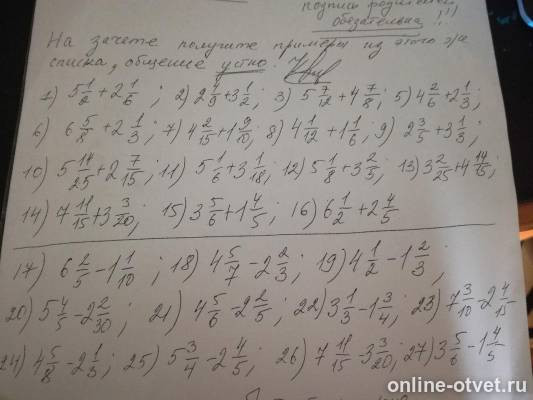 подпись родителей
обязательна !!!
На зачете получите примеры из этого же
списка, общение устно.
1) 5 1/2 + 2 1/6 ; 2) 2 4/9 + 3 1/2 ; 3) 5 7/12 + 4 7/8 ; 5) 4 2/6 + 2 1/3 ;
6) 6 5/8 + 2 1/3 ; 7) 4 2/15 + 1 9/10 ; 8) 4 1/12 + 1 1/6 ; 9) 2 3/5 + 3 1/3 ;
10) 5 14/25 + 2 7/15 ; 11) 5 1/6 + 3 1/18 ; 12) 5 1/8 + 3 2/5 ; 13) 3 2/25 + 4 14/15 ;
14) 7 11/15 + 3 3/20 ; 15) 3 5/6 + 1 4/5 ; 16) 6 1/2 + 2 4/5
17) 6 2/5 - 1 1/10 ; 18) 4 5/7 - 2 2/3 ; 19) 4 1/2 - 1 2/3 ;
20) 5 4/5 - 2 2/30 ; 21) 4 5/6 - 2 2/5 ; 22) 3 1/3 - 1 3/4 ; 23) 7 3/10 - 2 4/15
24) 4 5/8 - 2 1/3 ; 25) 5 3/4 - 2 4/5 ; 26) 7 11/15 - 3 3/20 ; 27) 3 5/6 - 1 4/5
online-otvet.ru